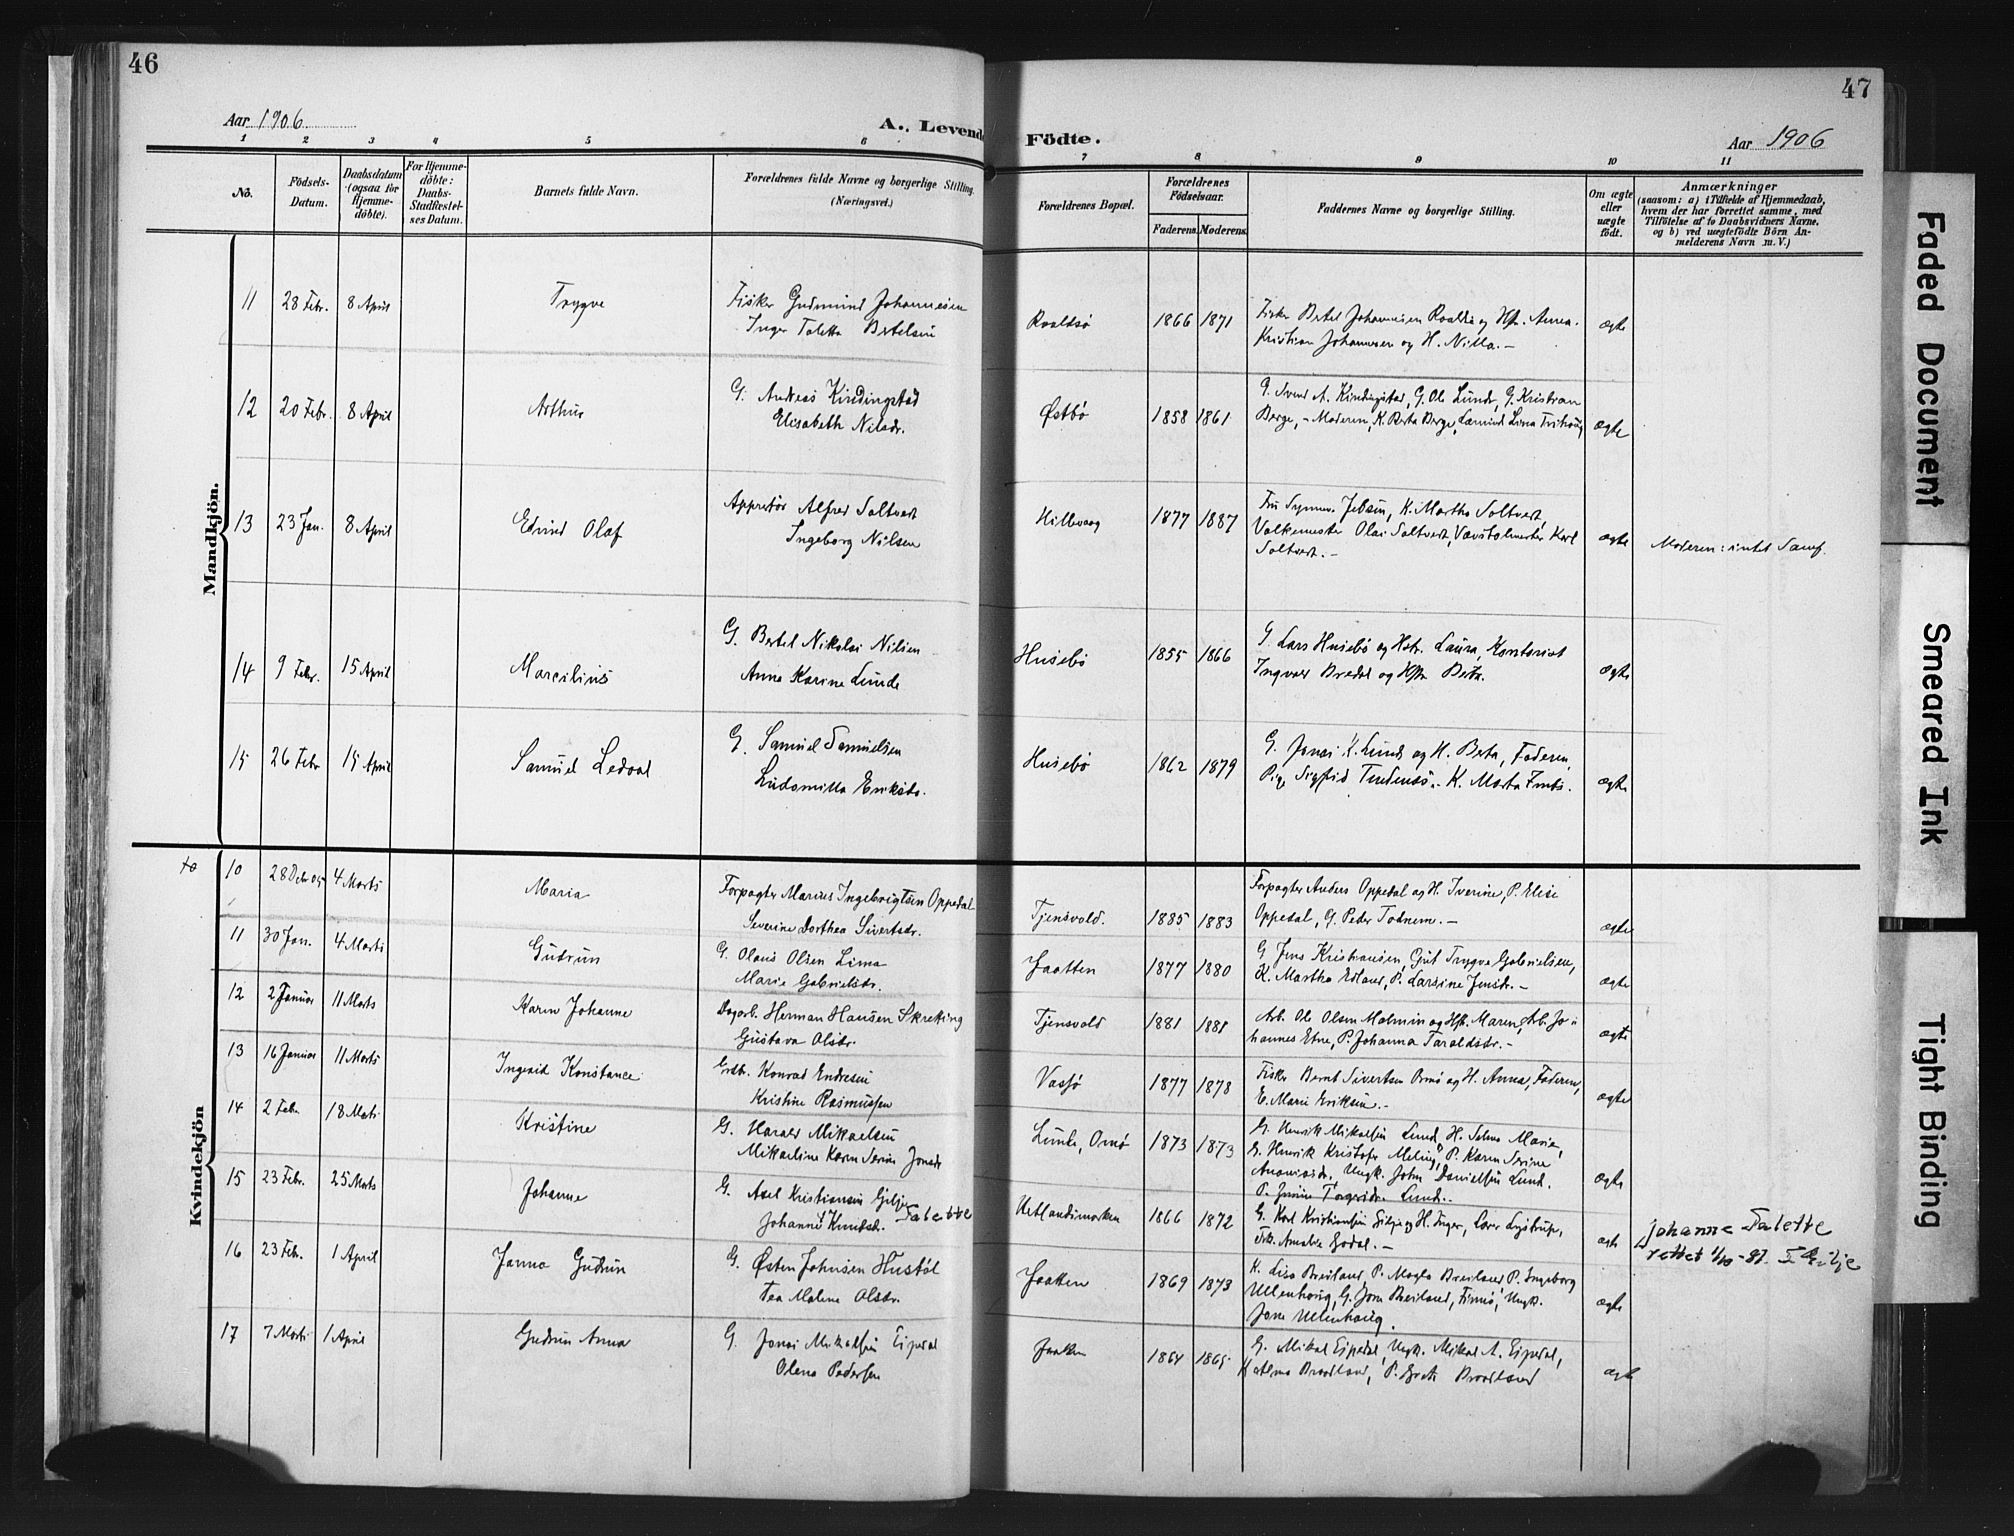 46
Aar 1906
A. Levende
1 2 3 4 5 6
No.
Födsels-
Datum.
Daabsdatum
(ogsaa for
Hjemme-
döbte).
For Hjemme-
döbte:
Daabs-
Stadfæstel-
ses Datum.
Barnets fulde Navn.
Forældrenes fulde Navne og borgerlige Stilling.
(Næringsvei.)
Mandkjön.
11 28 Febr. 8 April Trygve Fisker Gudmund Johannesen
Inger Taletta Bertelsen
12 20 Febr. 8 April Arthur G. Andreas Kindingstad
Elisabeth Nilsdr.
13 23 Jan. 8 April Edvind Olaf Appretör Alfred Soltvedt
Ingeborg Nilsen
14 9 Febr. 15 April Marcelius G. Bertel Nikolai Nilsen
Anna Karine Lunde
15 26 Febr 15 April Samuel Ledaal G. Samuel Samuelsen
Ludomilla Eriksdr.
Kvindekjön
10 28 Dcbr 05 4 Marts Maria Forpagter Marius Ingebrigtsen Oppedal
Severine Dorthea Sivertsdr.
11 30 Jan. 4 Marts Gudrun G. Olaus Olsen Lima
Marie Gabrielsdr.
12 2 Januar 11 Marts Karen Johanne Dagarb. Herman Hansen Skreking
Gustava Olsdr.
13 16 Januar 11 Marts Ingerid Konstance Grdb. Konrad Endresen
Kristine Rasmussen
14 2 Febr. 18 Marts Kristine G. Harald Mikaelsen
Mikaeline Karen Serine Jonasdr
15 23 Febr. 25 Marts Johanne G. Axel Kristiansen Gilje
Johanne Knutsdr. Talette
16 23 Febr. 1 April Janna Gudrun G. Østen Johnsen Hustøl
Tea Malene Olsdr.
17 7 Marts 1 April Gudrun Anna G. Jonas Mikalsen Eipedal
Olena Pedersen
47
Födte.
Aar 1906
7 8 9 10 11
Forældrenes Bopæl.
Forældrenes
Födselsaar.
Faderens. Moderens.
Faddernes Navne og borgerlige Stilling.
Om ægte
eller
uægte
födt.
Anmærkninger
(saasom: a) i Tilfælde af Hjemmedaab,
hvem der har forrettet samme, med
Tilföielse af to Daabsvidners Navne,
og b) ved uægtefödte Börn An-
melderens Navn m. V.)
Roaldsø 1866 1871 Fisker Bertel Johannesen Roaldsø og Hstr. Anna. ægte
Kristian Johannesen og H. Nilla. -
Østbø 1858 1861 G. Svend A. Kindingstad, G. Ole Lunde, G. Kristian ægte
Berge, - Moderen, K. Berta Berge, Lima
Hillevaag 1877 1887 Jebsen, K. Martha Soltvedt, ægte Moderen: intet Samf.
Valkemester Olai Soltvedt, Vævstolmester Karl
Soltvedt. -
Husebø 1855 1866 G. Lars Husebø og Hstr. Laura, Kontorist ægte
Ingvald Bredal og Hstr. Berta.
Husebø 1862 1879 G. Jonas K. Lunde og H. Berta, Faderen, ægte
Pige Sigfrid K. Marta
Tjensvold. 1885 1883 Forpagter Anders Oppedal og H. Iverine, P. Elise ægte
Oppedal, G. Peder Todnem. -
Jaatten 1877 1880 G. Jens Kristiansen, Gut Trygve Gabrielsen, ægte
K. Martha Edland, P. Larsine Jensdr. -
Tjensvold 1881 1881 Arb. Ole Olsen Malmin og Hstr. Maren, Arb. Jo-
hannes Etne, P. Johanna Taraldsdr. - ægte
Vassø 1877 1878 Fisker Bernt Sivertsen Omø og H. Anna, Faderen, ægte
E. Marie Eriksen. -
Lunde, Omø 1873 1873 G. Henrik Mikalsen Lund, H. Selma Marie,
G. Henrik Kristofer Meling, P. Karen Serine
Ananiasdr, Ungk. John Danielsen Lund. ægte
P. Torgersdr. Lund. -
Uetlandsmarken 1866 1872 G. Karl Kristiansen Gilje og H. Inger, Lystrup, ægte Johanne Talette
Frk. Amalie Godal. - rettet 1/10-87. Gilje
Jaatten 1869 1873 K. Lisa Breiland, P. Magla Breiland P. Ingeborg
Ullenhaug, G. Jone Breiland, Finnø, Ungk. ægte
Jone Ullenhaug.
Jaatten 1864 1865 G. Mikal Eipedal, Ungk. Mikal A. Eipedal,
K. Alma Braadland, P. Berta Braadland ægte
Faded Document
Smeared Ink
Tight Binding